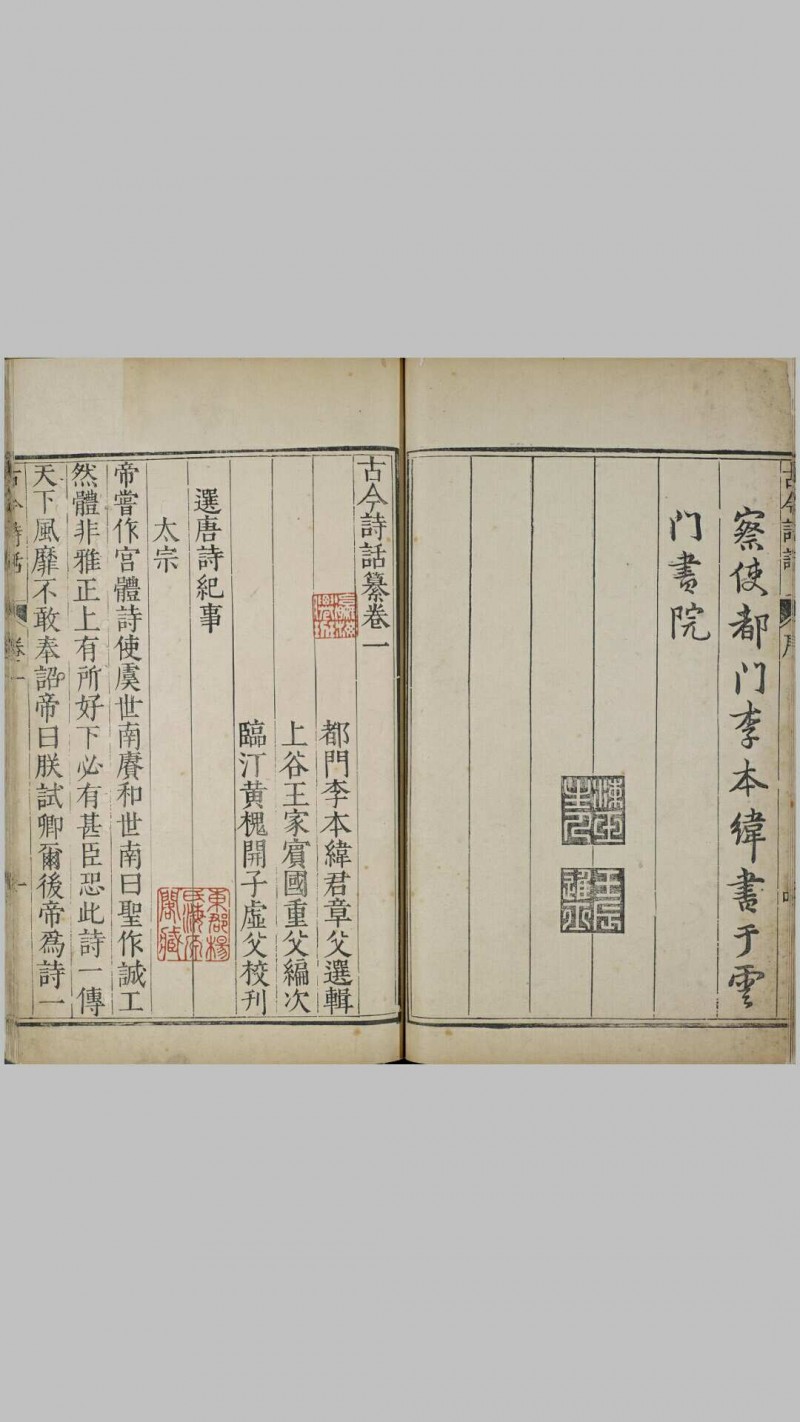 察使都门李本緯書于雲
门書院
古今詩話纂卷一
都門李本緯君章父選輯
上谷王家賓國重父編次
臨汀黄槐開子虛父校刊
選唐詩紀事
太宗
帝嘗作宮體詩使虞世南賡和世南曰聖作誠工
然體非雅正上有所好下必有甚臣恐此詩一傳
天下風靡不敢奉詔帝曰朕試卿爾後帝為詩一
古今詩話 卷一 一
東郡楊氏海源閣藏